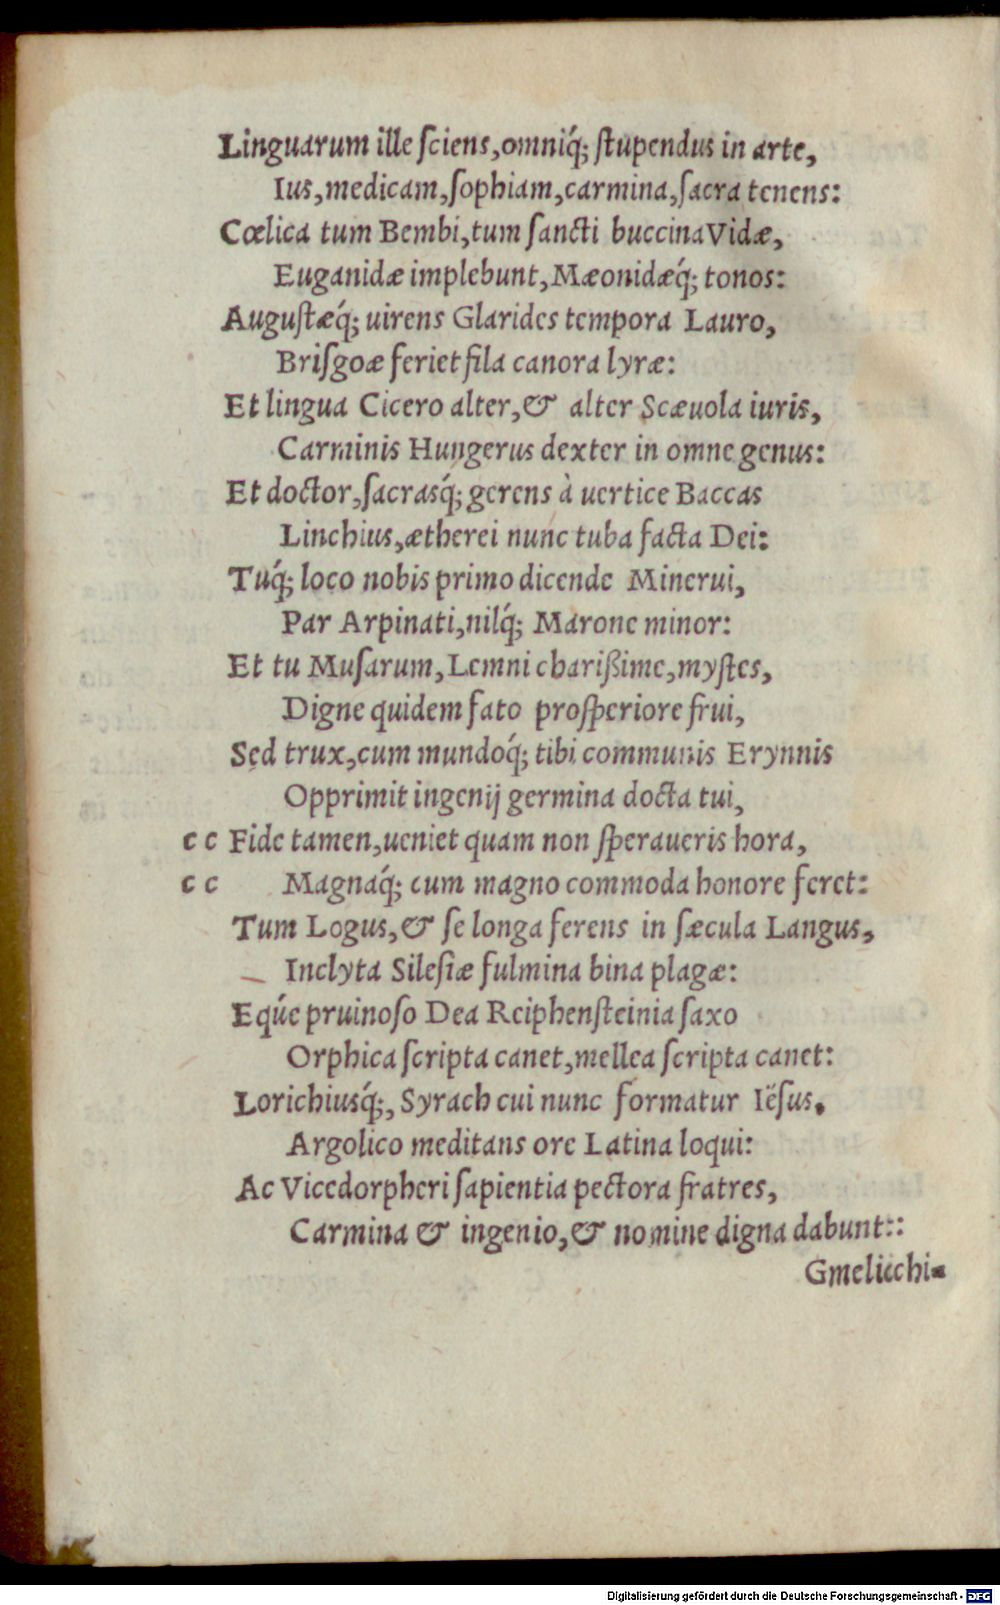 Linguarum ille ſciens,omniq́; ſtupendus in arte,
Ius,medicam,ſophiam,carmina,ſacra tenens:
Cœlica tum Bembi,tum ſancti buccina Vidæ,
Euganidæ implebunt,Mæonidæq́; tonos:
Auguſtæq́; uirens Glarides tempora Lauro,
Briſgoæ feriet fila canora lyræ:
Et lingua Cicero alter,& alter Scæuola iuris,
Carminis Hungerus dexter in omne genus:
Et doctor,ſacrasq́; gerens à uertice Baccas
Linchius,ætherei nunc tuba facta Dei:
Tuq́; loco nobis primo dicende Minerui,
Par Arpinati,nilq́; Marone minor:
Et tu Muſarum,Lemni chariſſime,myſtes,
Digne quidem fato proſperiore frui,
Sed trux,cum mundoq́; tibi communis Erynnis
Opprimit ingenij germina docta tui,
c c Fide tamen,ueniet quam non ſperaueris hora,
c c Magnaq́; cum magno commoda honore feret:
Tum Logus,& ſe longa ferens in ſæcula Langus,
Inclyta Sileſiæ fulmina bina plagæ:
Eqúe pruinoſo Dea Reiphenſteinia ſaxo
Orphica ſcripta canet,mellea ſcripta canet:
Lorichiusq́;, Syrach cui nunc formatur Iëſus.
Argolico meditans ore Latina loqui:
Ac Vicedorpheri ſapientia pectora fratres,
Carmina & ingenio,& nomine digna dabunt::
Gmelicchi-
Digitalisierung gefördert durch die Deutsche Forschungsgemeinschaft - DFG